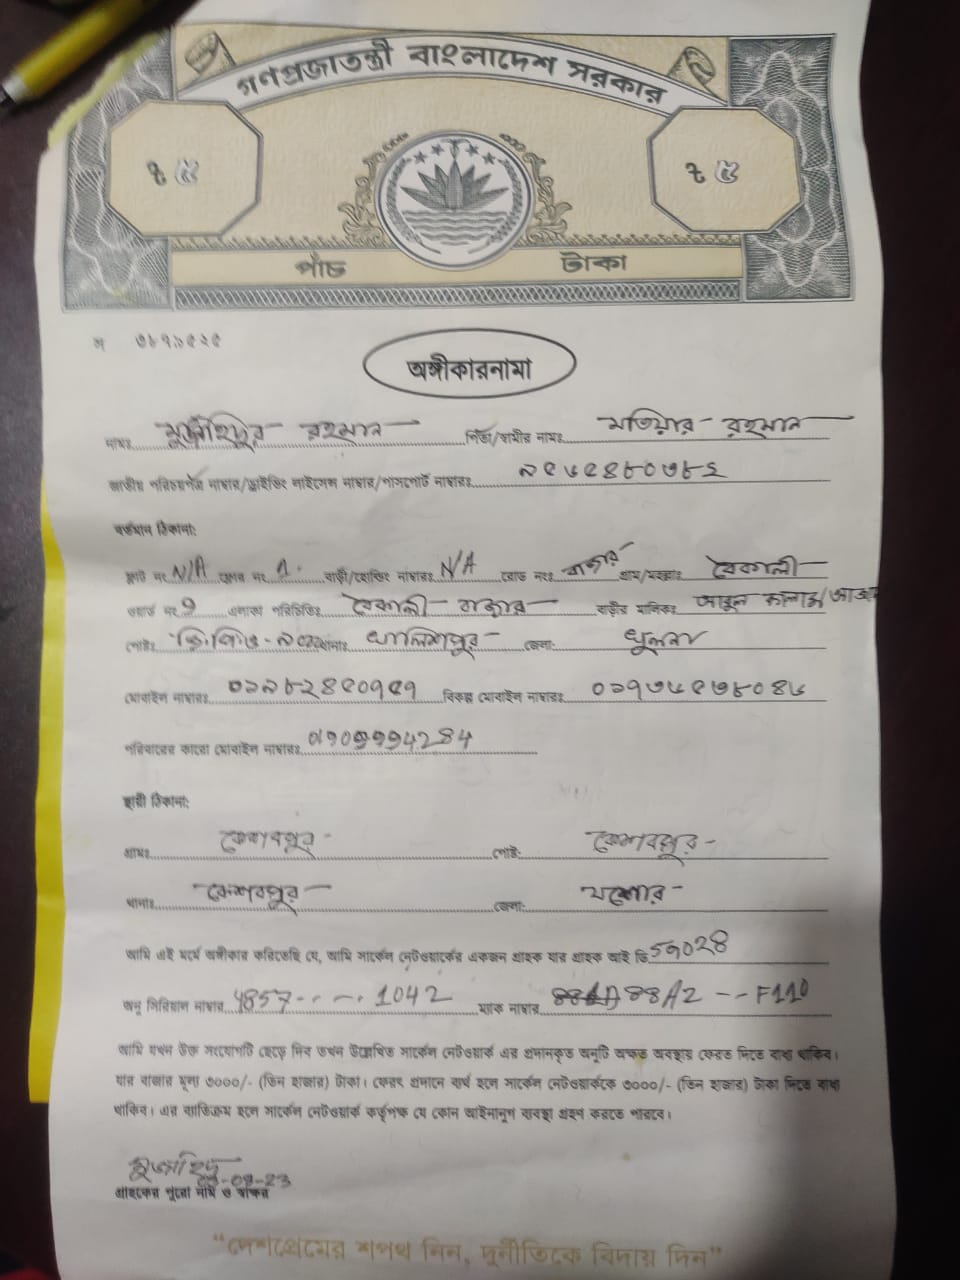 গণপ্রজাতন্ত্রী বাংলাদেশ সরকার
৳ ৫ ৳ ৫
পাঁচ টাকা
ঘ ৩৮৭৯৫২৫
অঙ্গীকারনামা
নামঃ মুজাহিদুর রহমান পিতা/স্বামীর নামঃ মতিয়ার রহমান
জাতীয় পরিচয়পত্র নাম্বার/ড্রাইভিং লাইসেন্স নাম্বার/পাসপোর্ট নাম্বারঃ
বর্তমান ঠিকানা:
ফ্লাট নং N/A ফ্লোর নং 1. বাড়ী/হোল্ডিং নাম্বারঃ N/A রোড নংঃ বাজার গ্রাম/মহল্লাঃ বৈকালী
ওয়ার্ড নং 9 এলাকা পরিচিতিঃ বৈকালী বাজার বাড়ীর মালিকঃ আবুল কালাম/আজাদ
পোষ্টঃ জি.পি.ও থানাঃ খালিশপুর জেলা: খুলনা
মোবাইল নাম্বারঃ বিকল্প মোবাইল নাম্বারঃ
পরিবারের কারো মোবাইল নাম্বারঃ
স্থায়ী ঠিকানা:
গ্রামঃ কেশবপুর পোষ্ট: কেশবপুর
থানাঃ কেশবপুর জেলা: যশোর
আমি এই মর্মে অঙ্গীকার করিতেছি যে, আমি সার্কেল নেটওয়ার্কের একজন গ্রাহক যার গ্রাহক আই ডি 59028
অনু সিরিয়াল নাম্বার 4857-----1042 ম্যাক নাম্বার 88A2 -- F110
আমি যখন উক্ত সংযোগটি ছেড়ে দিব তখন উল্লেখিত সার্কেল নেটওয়ার্ক এর প্রদানকৃত অনুটি অক্ষত অবস্থায় ফেরত দিতে বাধ্য থাকিব।
যার বাজার মূল্য ৩০০০/- (তিন হাজার) টাকা। ফেরৎ প্রদানে ব্যর্থ হলে সার্কেল নেটওয়ার্ককে ৩০০০/- (তিন হাজার) টাকা দিতে বাধ্য
থাকিব। এর ব্যতিক্রম হলে সার্কেল নেটওয়ার্ক কর্তৃপক্ষ যে কোন আইনানুগ ব্যবস্থা গ্রহণ করতে পারবে।
মুজাহিদ
-23
গ্রাহকের পুরো নাম ও স্বাক্ষর
"দেশপ্রেমের শপথ নিন, দুর্নীতিকে বিদায় দিন"